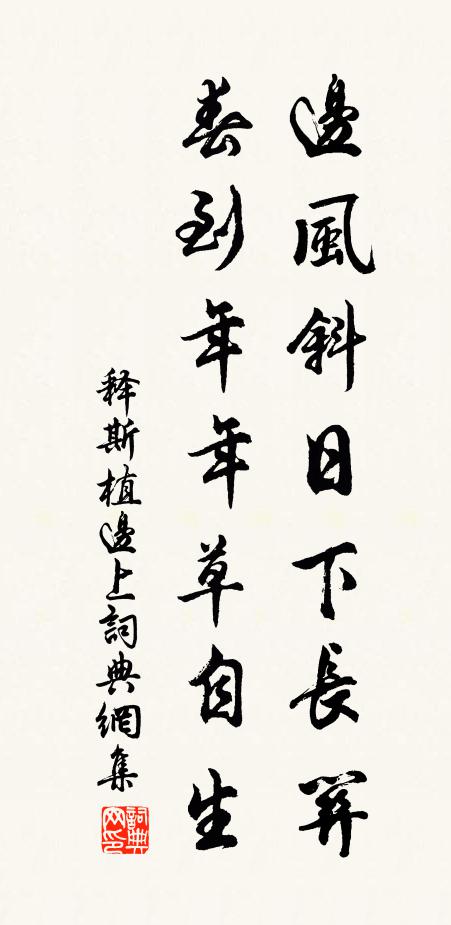 邊風斜日下長關
春到年年草自生
释斯植邊上詞典網集
詞典網印